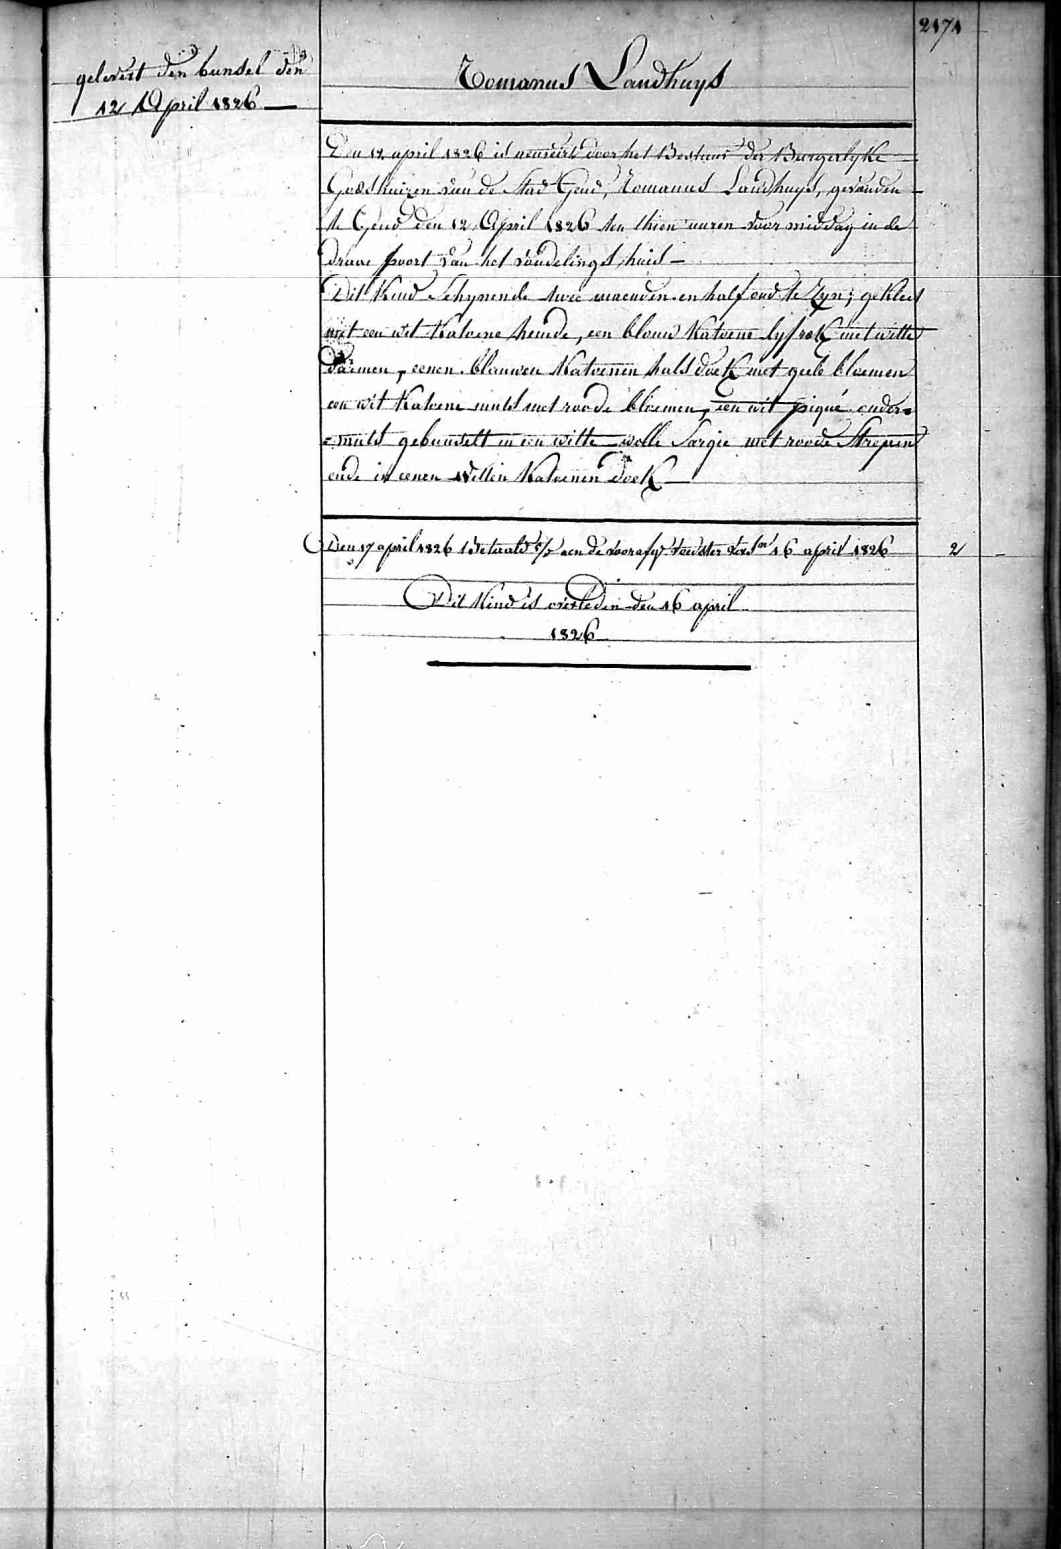 2171
gelevert den bunsel den
12 April 1826 —
Romanus Landhuys
Den 12 april 1826 is aenveirt door het Bestuur der Burgerlyke
Godshuizen van de Stad Gend, Romanus Landhuys, gevonden
te Gend den 12 April 1826 ten thien uuren voormiddag in de
draai poort van het vondelings huis —
Dit Kind Schynende twee maenden en half oud te Zyn; gekleed
met een wit Katoene hemde, een blauw Katoene lyfrok met witte
eenen blauwen Katoenen halsdoek met geele bloemen
een wit Katoene muts met roode bloemen, een wit piqué onder=
=muts gebunselt in een witte wolle Sargie met roode Strepen
ende in eenen Witten Katoenen Doek —
Den 17 april 1826 Betaeld aen de voedster 16 april 1826 2 —
Dit Kind is overleden den 16 april
1826